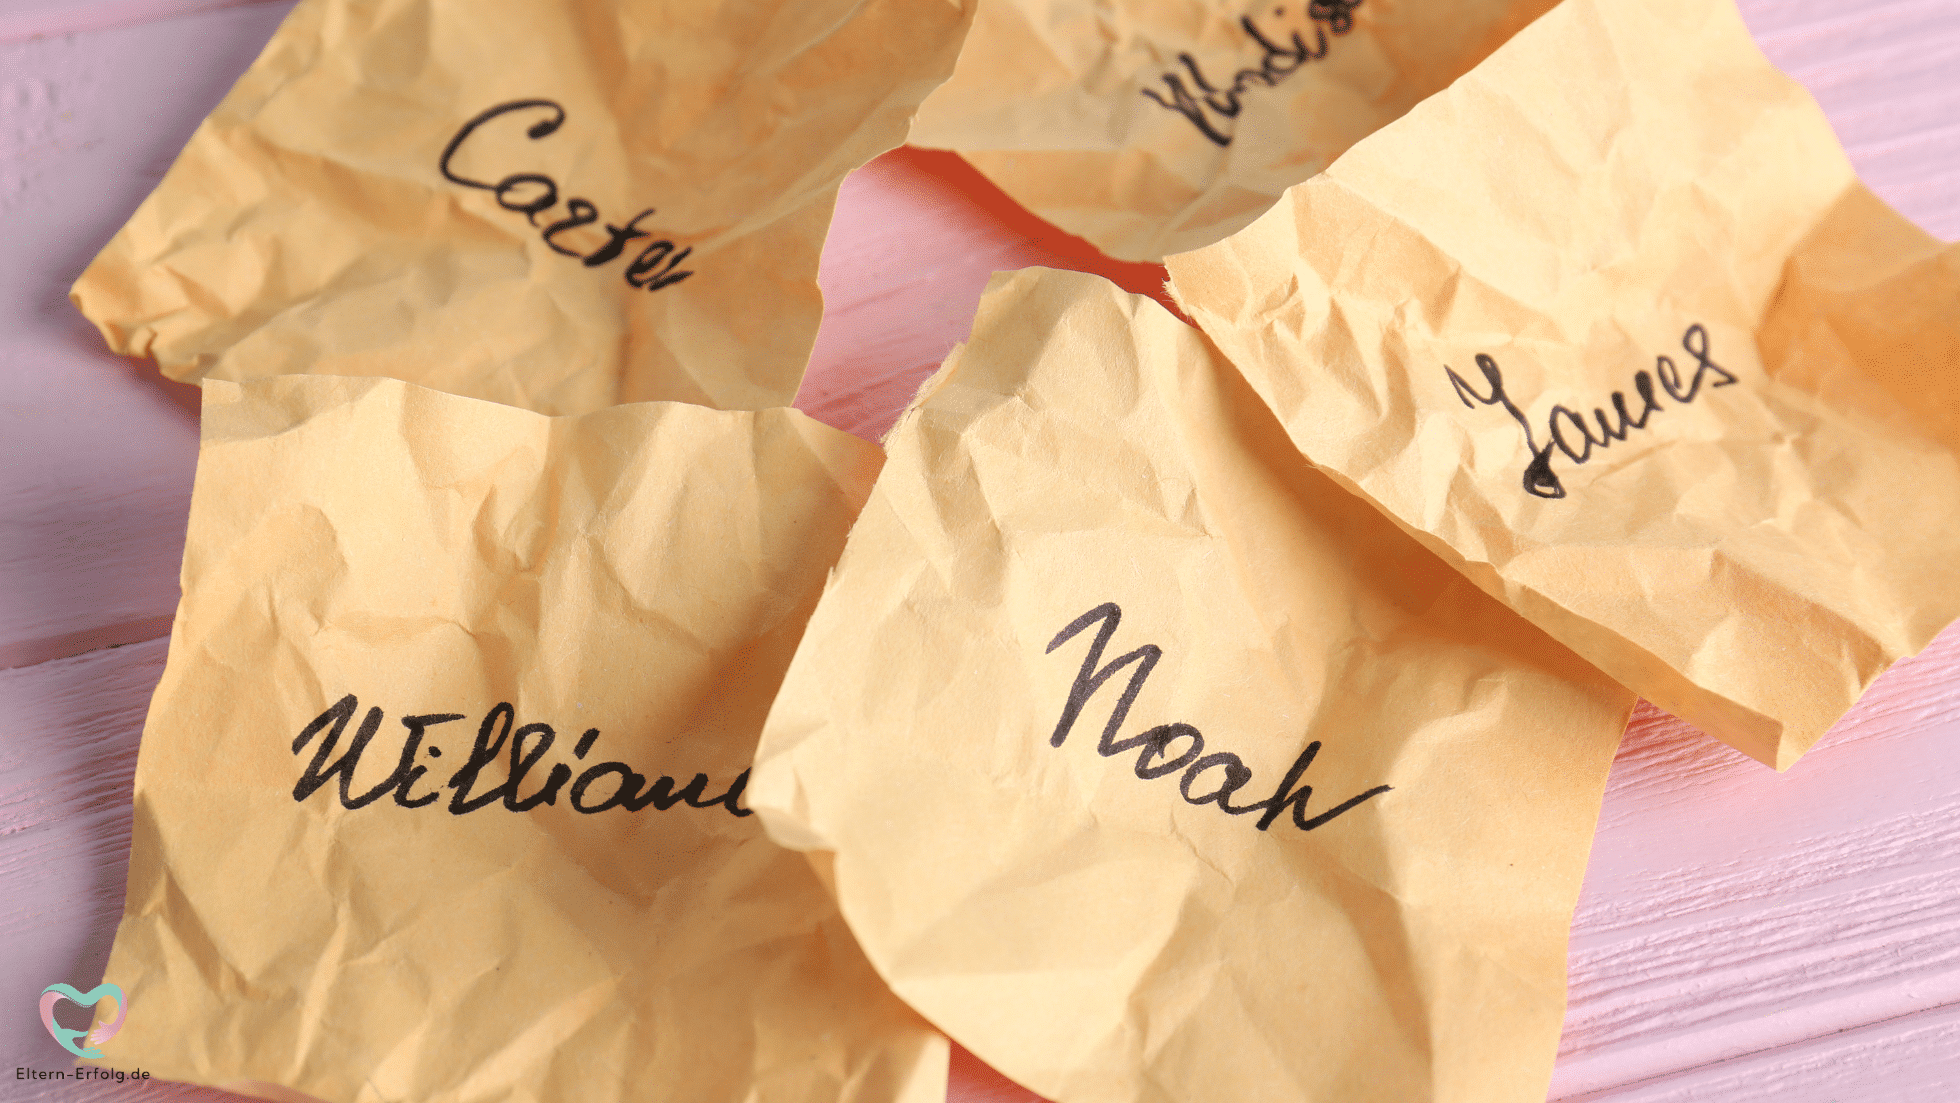 Carter
James
William
Noah
Eltern-Erfolg.de